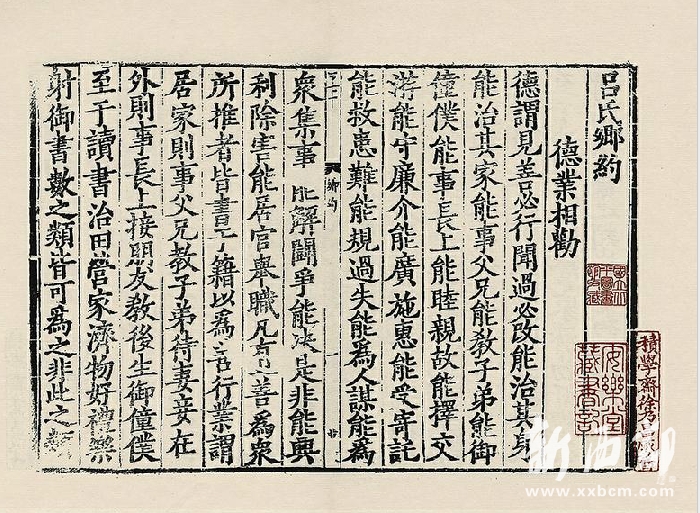 呂氏鄉約
德業相勸
德謂見善必行聞過必改能治其身
能治其家能事父兄能教子弟能御
僮僕能事長上能睦親故能擇交
游能守廉介能廣施惠能受寄託
能救患難能規過失能為人謀能為
衆集事能解鬭爭能決是非能興
鄉約
利除害能居官舉職凡有一善為衆
所推者皆書于籍以為善行業謂
居家則事父兄教子弟待妻妾在
外則事長上接朋友教後生御僮僕
至于讀書治田營家濟物好禮樂
射御書數之類皆可為之非此之類
安樂堂
藏書記
積學齋徐乃昌藏書
新西湖
www.xxbcm.com